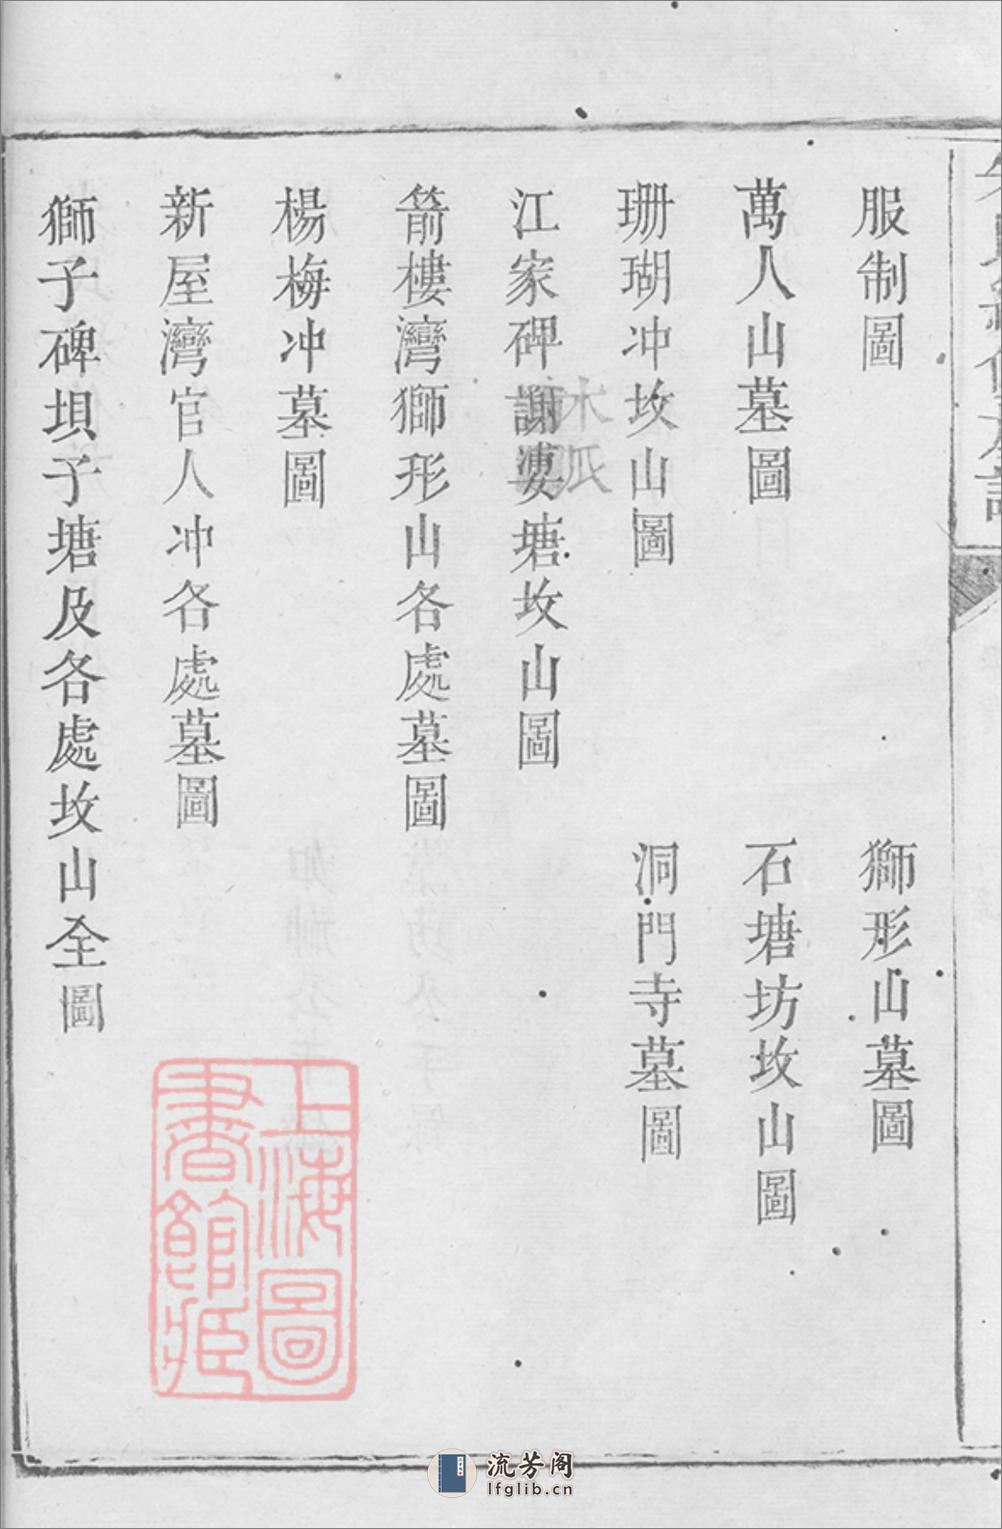 服制圖
獅形山墓圖
萬人山墓圖
石塘坊坟山圖
珊瑚冲坟山圖
洞門寺墓圖
江家碑謝婁塘坟山圖
箭樓灣獅形山各處墓圖
楊梅冲墓圖
新屋灣官人冲各處墓圖
獅子碑坝子塘及各處坟山全圖
上海圖
書館藏
流芳阁
lfglib.cn